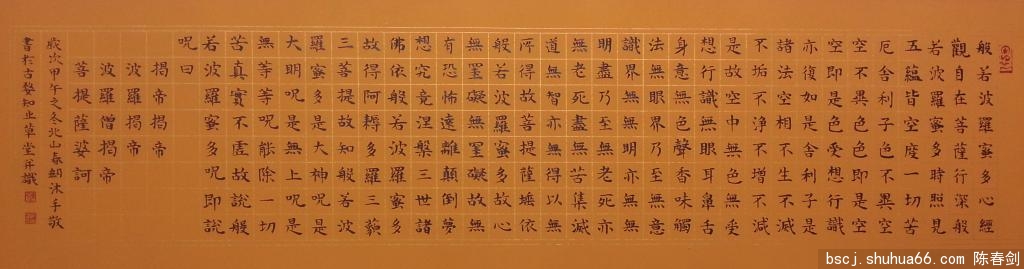 般若波羅蜜多心經
觀自在菩薩行深般
若波羅蜜多時照見
五蘊皆空度一切苦
厄舍利子色不異空
空不異色色即是空
空即是色受想行識
亦復如是舍利子是
諸法空相不生不滅
不垢不淨不增不減
是故空中無色無受
想行識無眼耳鼻舌
身意無色聲香味觸
法無眼界乃至無意
識界無無明亦無無
明盡乃至無老死亦
無老死盡無苦集滅
道無智亦無得以無
所得故菩提薩埵依
般若波羅蜜多故心
無罣礙無罣礙故無
有恐怖遠離顛倒夢
想究竟涅槃三世諸
佛依般若波羅蜜多
故得阿耨多羅三藐
三菩提故知般若波
羅蜜多是大神呪是
大明呪是無上呪是
無等等呪能除一切
苦真實不虛故說般
若波羅蜜多呪即說
呪曰
揭帝揭帝
波羅揭帝
波羅僧揭帝
菩提薩婆訶
歲次甲午之冬北山春劍沐手敬
書於古黎知止草堂並識
bscj.shuhua66.com 陈春剑